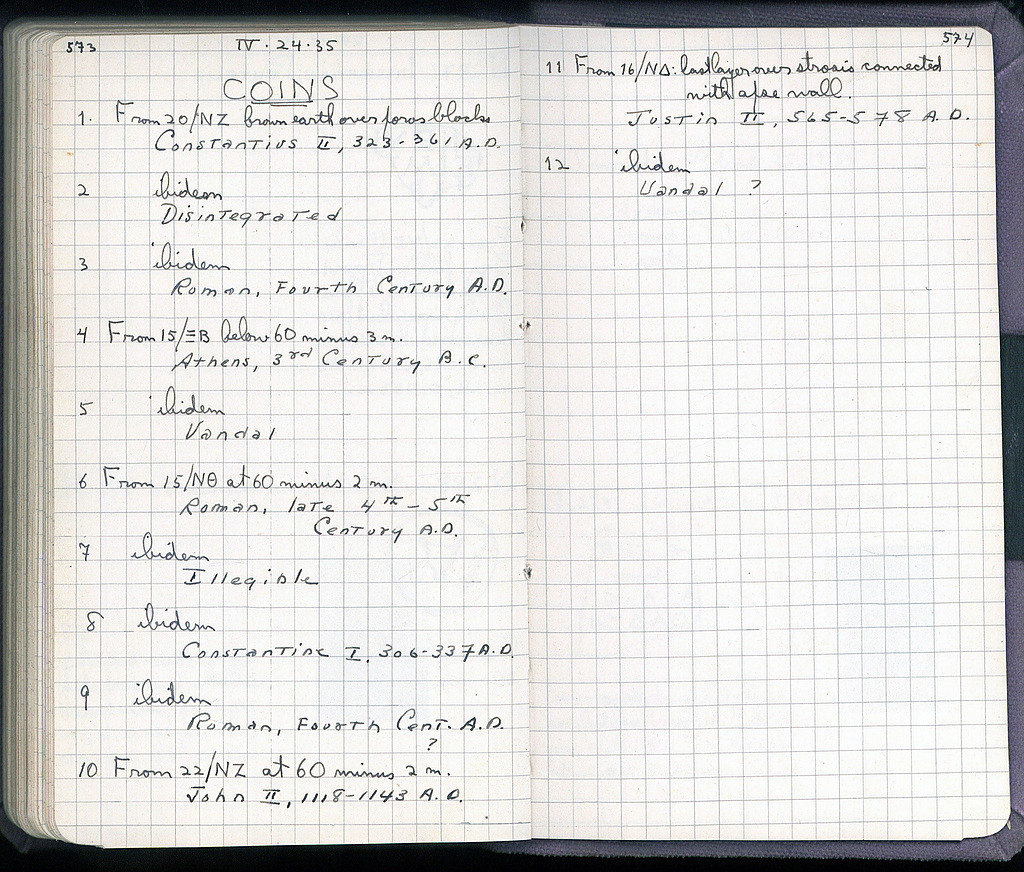 573
IV · 24 · 35
COINS
1. From 20/NZ brown earth over poros blocks
Constantius II, 323-361 A.D.
2 ibidem
Disintegrated
3 ibidem
Roman, Fourth Century A.D.
4 From 15/ΞB below 60 minus 3 m.
Athens, 3rd Century B.C.
5 ibidem
Vandal
6 From 15/NΘ at 60 minus 2 m.
Roman, late 4th - 5th
Century A.D.
7 ibidem
Illegible
8 ibidem
Constantine I, 306-337 A.D.
9 ibidem
Roman, Fourth Cent. A.D.
?
10 From 22/NZ at 60 minus 2 m.
John II, 1118-1143 A.D.
574
11 From 16/NΔ: last layer over strosis connected
with apse wall.
Justin II, 565-578 A.D.
12 ibidem
Vandal ?